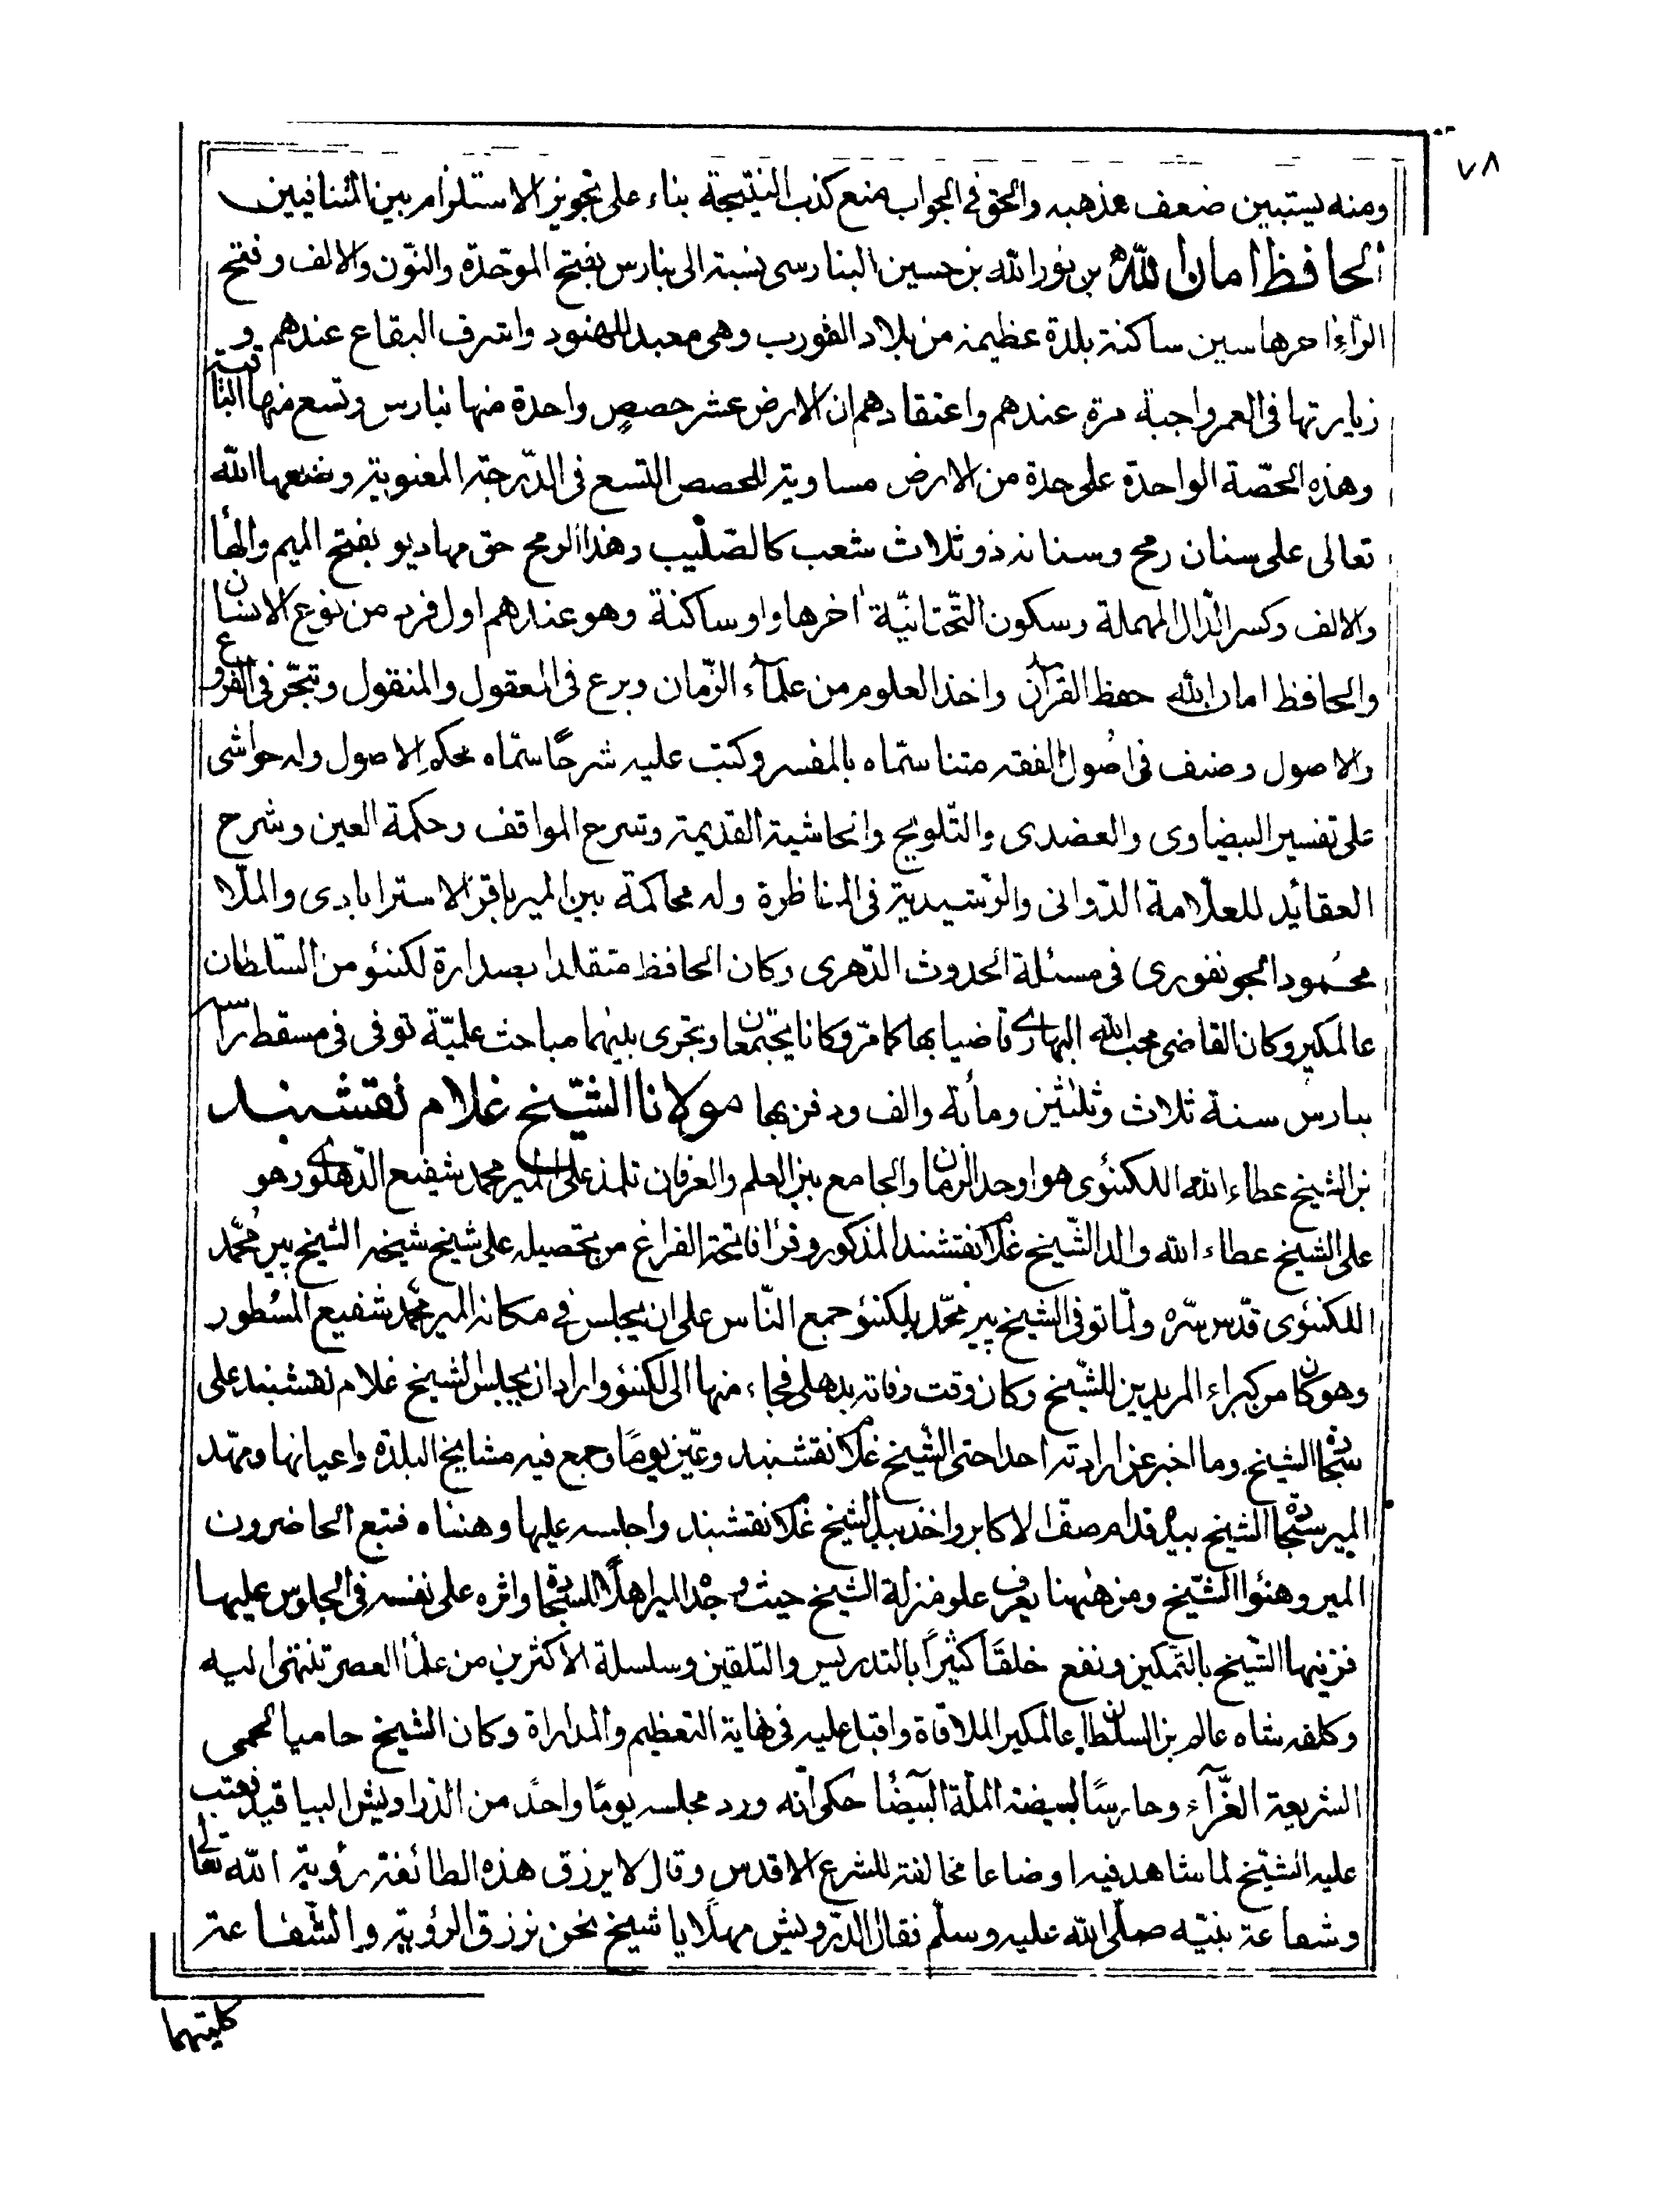 ٧٨
ومنه يستبين ضعف مذهبه والحق في الجواب منع كذب النتيجة بناء على تجويز الاستلزام بين المتنافيين
الحافظ امان الله بن نور الله بن حسين البنارسى نسبة الى بنارس بفتح الموحّدة والنّون والالف وفتح
الرّاءِ اخرها سين ساكنة بلدة عظيمة من بلاد الفورب وهى معبد للهنود واشرف البقاع عندهم و
زيارتها فى العمر واجبة مرة عندهم واعتقادهم ان الارض عشر حصصٍ واحدة منها بنارس وتسع منها البا قية
وهذه الحصّة الواحدة على حدة من الارض مساوية للحصص التسع فى الدّرجة المعنوية وضعها الله
تعالى على سنان رمح وسنانه ذو ثلاث شعب كالصّليب وهذا الرمح حق مهاديو بفتح الميم والها
والالف وكسر الدّال المهملة وسكون التّحتانيّة اخرها واو ساكنة وهو عندهم اول فرد من نوع الانسان
والحافظ امان الله حفظ القرآن واخذ العلوم من علمآء الزّمان وبرع فى المعقول والمنقول وتبحّر فى الفروع
والاصول وصنف فى اصول الفقه متنا سمّاه بالمفسر وكتب عليه شرحًا سمّاه محكم الاصول وله حواشى
على تفسير البيضاوى والعضدى والتّلويح والحاشية القديمة وشرح المواقف وحكمة العين وشرح
العقائد للعلّامة الدّوانى والرّشيدية فى المناظرة وله محاكمة بين المير باقر الاسترابادى والملّا
محمود الجونفورى فى مسئلة الحدوث الدّهرى وكان الحافظ متقلدا بصدارة لكنئو من السّلطان
عالمكير وكان القاضى محب الله البهارى قاضيا بها كما مرّ وكانا يجتمعان وتجرى بينهما مباحث علميّة توفى فى مسقط راسه
ببنارس سنة ثلاث وثلثين ومأئة والف ودفن بها مولانا الشّيخ غلام نقشبند
بن الشيخ عطاء الله اللكنئوى هو اوحد الزمان والجامع بين العلم والعرفان تلمذ على المير محمد شفيع الدّهلوى وهو
على الشيخ عطاء الله والد الشّيخ غلام نقشبند المذكور وقرأ فاتحة الفراغ من تحصيله على شيخ شيخه الشيخ پير محمّد
اللكنئوى قدّس سّره ولمّا توفى الشيخ پير محمّد بلكنئو جمع النّاس على ان يجلس فى مكانه المير محمّد شفيع المسطور
وهو كان من كبراء المريدين للشّيخ وكان وقت وفاته بدهلى فجاء منها الى لكنئو واراد ان يجلس الشيخ غلام نقشبند على
سجادة الشيخ وما اخبر عن ارادته احدا حتى الشّيخ غلام نقشبند وعيّن يومًا وجمع فيه مشايخ البلدة واعيانها ومهّد
المير سجادة الشيخ بيده قدام صفّ الاكابر واخذ بيد الشيخ غلام نقشبند واجلسه عليها وهنّاه فتبع الحاضرون
المير وهنئوا الشّيخ ومن هٰهنا يعرف علو منزلة الشيخ حيث وجده المير اهلًا للسجادة واثره على نفسه فى الجلوس عليها
فزينها الشّيخ بالتّمكين ونفع خلقًا كثيرًا بالتدريس والتلقين وسلسلة الاكثرين من علمأ العصر تنتهى اليه
وكلفه شاه عالم بن السلطان عالمكير الملاقاة واقبل عليه فى نهاية التعظيم والمداراة وكان الشيخ حاميا لحمى
الشريعة الغرّآء وحارسًا لبيضة الملّة البيضأ حكى انّه ورد مجلسه يومًا واحدً من الدّراويش البياقيد فعتب
عليه الشّيخ لما شاهد فيه اوضاعا مخالفة للشرع الاقدس وقال لا يرزق هذه الطائفة رؤية الله تعالى
وشفاعة نبيّه صلّى الله عليه وسلّم فقال الدّرويش مهلًا يا شيخ نحن نرزق الرؤية والشّفاعة
كليتهما